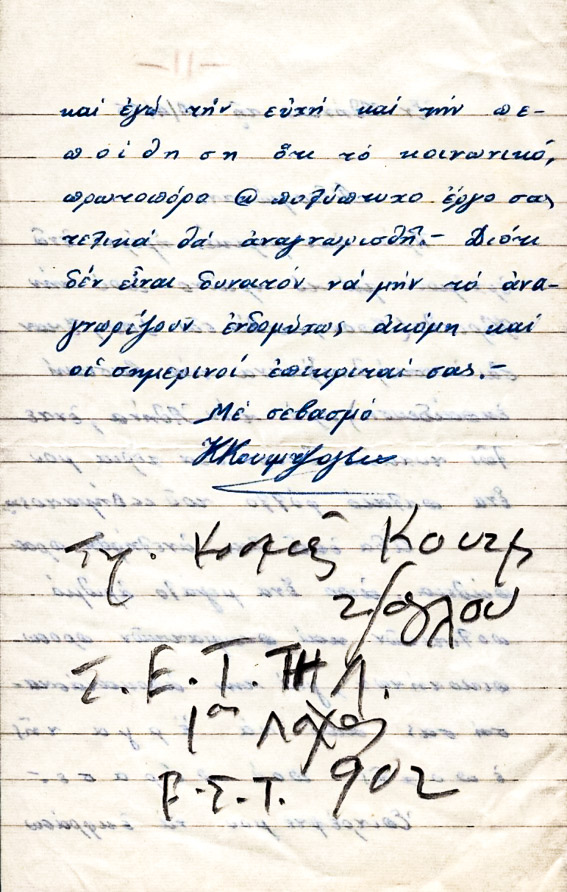 -11-
καί ἐγώ τήν εὐχή καί τήν πε-
ποίθηση ὅτι τό κοινωνικό,
πρωτοπόρο @ πολύπτυχο ἔργο σας
τελικά θά ἀναγνωρισθῆ.- Διότι
δέν εἶναι δυνατόν νά μήν τό ἀνα-
γνωρίζουν ἐνδομύχως ἀκόμη καί
οἱ σημερινοί ἐπικριταί σας.-
Μέ σεβασμό
Κοσμᾶς Κουτμ
τζόγλου
Σ.Ε.Τ. ΤΗΛ.
1ος Λόχος
Β.Σ.Τ. 902